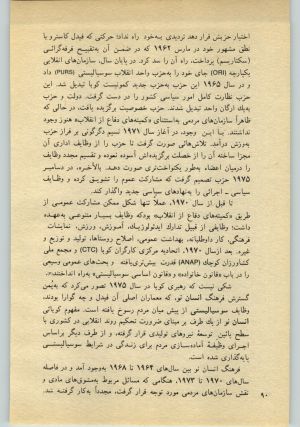 اختیار حزبش قرار دهد تردیدی به‌خود راه نداد؛ حرکتی که فیدل کاسترو با
نطق مشهور خود در مارس ۱۹۶۲ که در ضمن آن به‌تقبیح فرقه‌گرائی
(سکتاریسم) پرداخت، راه آن را سد کرد. در پایان سال، سازمان‌های انقلابی
یکپارچه (ORI) جای خود را به‌حزب واحد انقلاب سوسیالیستی (PURS) داد
و در سال ۱۹۶۵ این حزب به‌حزب جدید کمونیست کوبا تبدیل شد. این
حزب نظارت کامل امور سیاسی کشور را در دست گرفت. دولت و حزب
به‌یك ارگان واحد تبدیل شدند. حزب خصوصیت برگزیده یافت، در حالی که
ظاهراً سازمان‌های مردمی به‌استثنای «کمیته‌های دفاع از انقلاب» هنوز وجود
نداشتند. با این وجود، در آغاز سال ۱۹۷۱ نسیم دگرگونی بر فراز حزب
به‌وزش درآمد. تلاش‌هائی صورت گرفت تا حزب را از وظایف اداری آن
مجزا ساخته آن را از خصلت برگزیده‌اش آسوده نموده و تقسیم مجدد وظایف
را درمیان اعضاء به‌طور یکنواخت‌تری صورت دهد. بالأخره، در دسامبر
۱۹۷۵ حزب تصمیم گرفت که مشارکت عموم را تشویق کرده و وظایف
سیاسی - اجرائی را به‌نهادهای سیاسی جدید واگذار کند.
تا قبل از سال ۱۹۷۰، عملاً تنها شکل ممکن مشارکت عمومی از
طریق «کمیته‌های دفاع از انقلاب» بود‌که وظایف بسیار متنوعی به‌عهده
داشت؛ وظایفی از قبیل تدارك ایدئولوژیك، آموزش، ورزش، نمایشات
فرهنگی، کار داوطلبانه، بهداشت عمومی، اصلاح روستاها، تولید و توزیع و
غیره. بعد ازسال ۱۹۷۰، اتحادیه مرکزی کارگران کوبا (CTC) و مجمع ملی
کشاورزان کوچك (ANAP) قدرت بیش‌تری‌یافته و بحث‌های عمومی وسیعی
را در باب «قانون خانواده» و «قانون اساسی سوسیالیستی» به‌راه انداختند.
شکی نیست که رهبری کوبا در سال ۱۹۷۵ تصور می‌کرد که به‌یُمن
گسترش فرهنگ انسان نو، که معماران اصلی آن فیدل و چه گوارا بودند،
وظایف سوسیالیستی از پیش میان مردم رسوخ یافته است. مفهوم کوبائی
انسان نو از یك طرف بر مبنای ضرورت تحکیم روند انقلابی در کشوری با
سطح پائین توسعهٔ نیروهای تولیدی قرار گرفته، و از طرف دیگر براساس
اجرای وظیفهٔ آماده‌سازی مردم برای زندگی در شرایط سوسیالیستی
پایه‌گذاری شده است.
فرهنگ انسان نو بین سال‌های ۱۹۶۴ تا ۱۹۶۸ به‌وجود آمد و در فاصله
سال‌های ۱۹۷۰ تا ۱۹۷۳، هنگامی که مسائل مربوط به‌مشوق‌های مادی و
نقش سازمان‌های مردمی مورد توجه قرار گرفت، مجدداً به‌کار گرفته شد.
۹۰